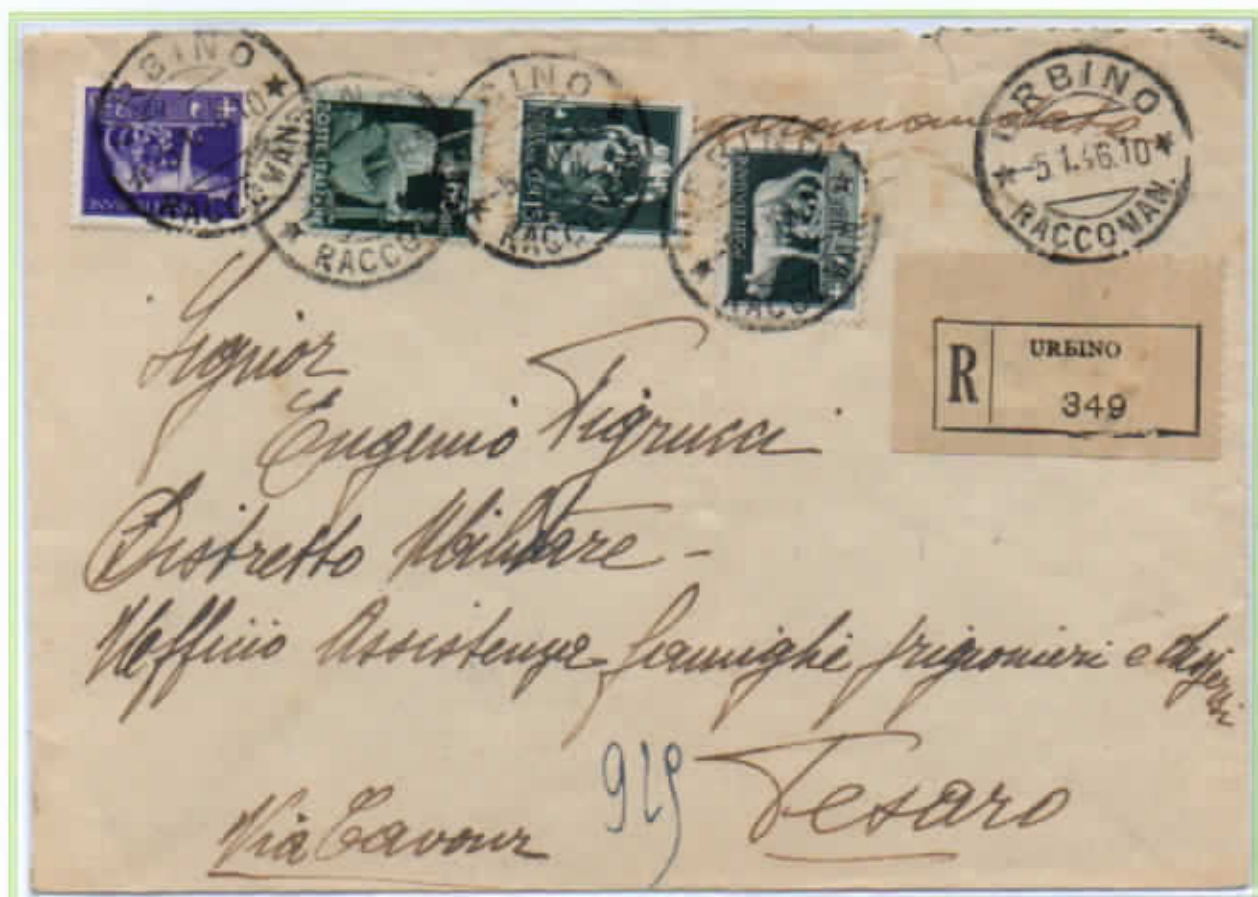 URBINO
-5.1.46.10
RACCOMAN.
RACCOMAN.
RACCO
RACCO
R URBINO
349
Signor
Eugenio Tigrucci
Distretto Militare -
Ufficio Assistenza famiglie prigionieri e dispersi
Via Cavour
925
Pesaro